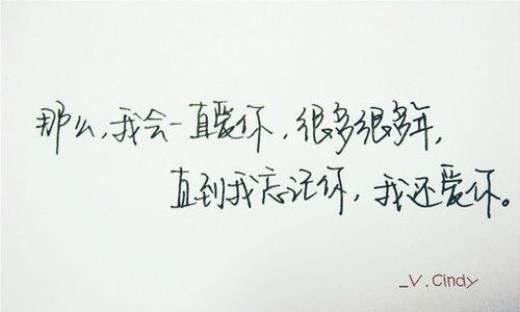 那么,我会一直爱你,很多很多年,
直到我忘记你,我还爱你。
_V.Cindy